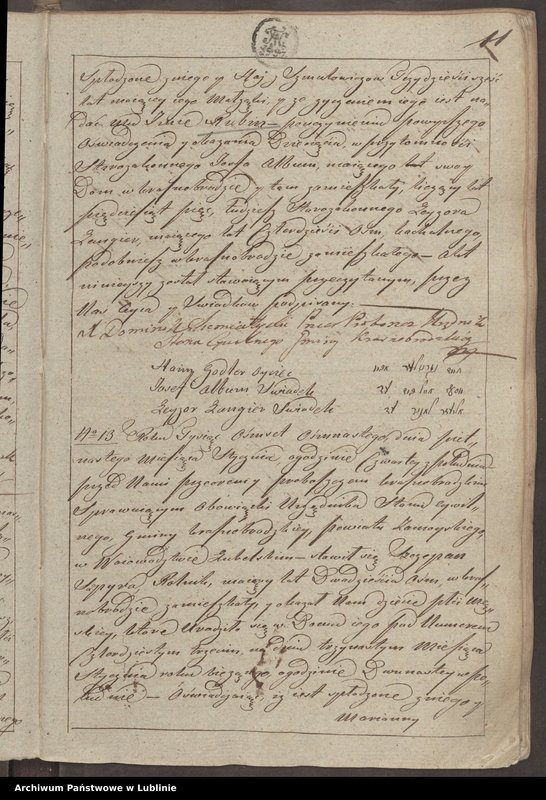 11
Spłodzone z niego y Haj Szmulowiczow Trzydzieści sześć
lat mającey iego Małżonki, y że życzeniem iego iest na-
dać mu Imie Rubin — po uczynieniu powyższego
Oświadczenia y okazania Dziecięcia, w przytomności
Starozakonnego Josefa Album, mającego swoy
Dom w Krasnobrodzie y tam zamieszkały, liczący lat
pięćdziesiąt pięć, tudzież Starozakonnego Leyzora
Langier, mającego lat Czterdzieści Osm, bachalnego,
podobnież w Krasnobrodzie zamieszkałego — Akt
ninieyszy został stawaiącym przeczytanym, przez
Nas Oyca y Swiadków podpisany.
X. Dominik Siemiatycki Proboszcz
Stanu Cywilnego Gminy Krasnobrodzkiey
Haim Godler Oyciec
Josef Album Swiadek
Leyzor Langier Swiadek
No 13 Roku Tysiąc Osmset Osmnastego, dnia pięt-
nastego Miesiąca Stycznia o godzinie Czwartey z południa
przed Nami Proboszczem Krasnobrodzkim
Sprawującym Obowiązki Urzędnika Stanu Cywil-
nego, Gminy Krasnobrodzkiey, Powiatu Zamoyskiego,
w Woiewodztwie Lubelskim — stawił się Szczepan
Szpyra Rolnik, mający lat Dwadzieścia Osm, w Kras-
nobrodzie zamieszkały, y okazał Nam dziecie płci Mę-
skiey, które Urodziło się w Domu iego pod Numerem
Czterdziestym trzecim, na dniu trzynastym Miesiąca
Stycznia roku bieżącego o godzinie Dwunastey w po-
łudnie — Oświadczaiąc, iż iest spłodzone z niego y
Maryanny
Archiwum Państwowe w Lublinie